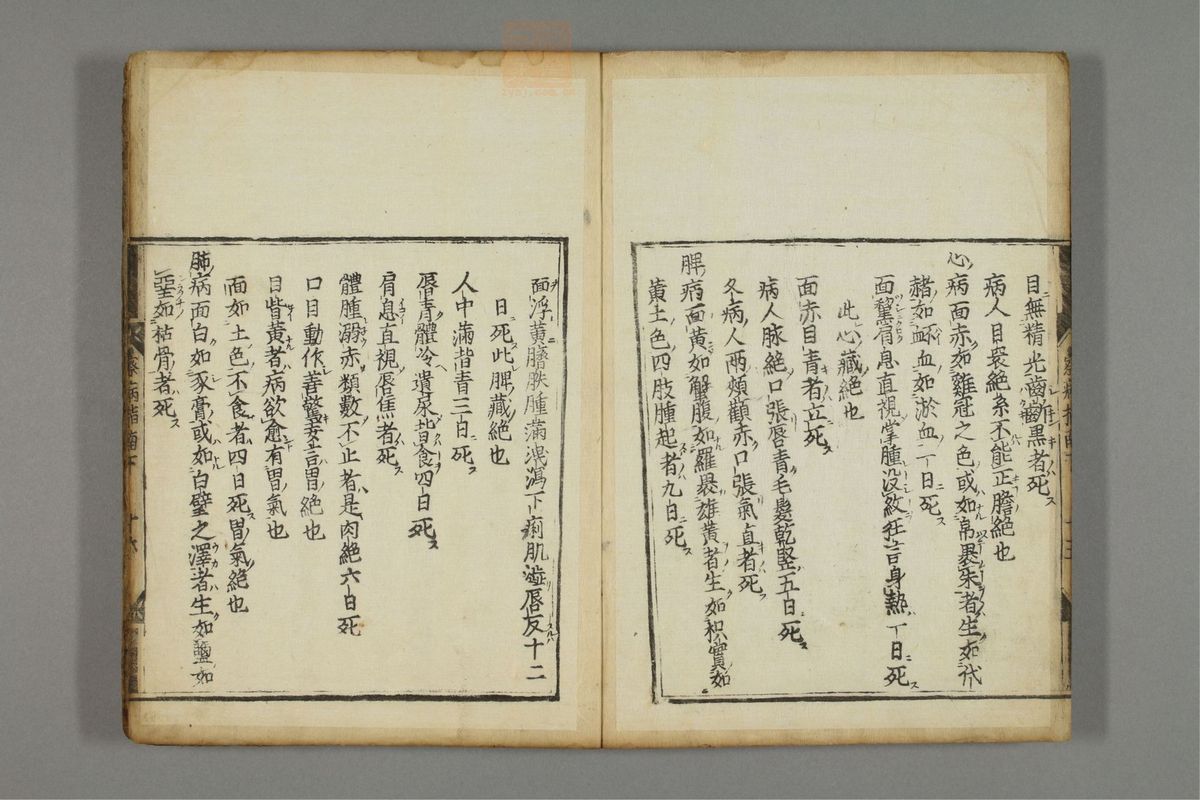 目無精光齒齗黑者死
病人目衮絶系不能正膽絶也
心病面赤如雞冠之色或如帛裹朱者生如代
赭如衃血如淤血一日死
面黧肩息直視掌腫没紋狂言身熱一日死
此心藏絶也
面赤目青者立死
病人脉絶口張唇青毛髮乾竪五日死
冬病人兩頰顴赤口張氣直者死
脾病面黄如蟹腹如羅裹雄黄者生如枳實如
黄土色四肢腫起者九日死
面浮黄臍腫滿洩瀉下痢肌澁唇反十二
日死此脾藏絶也
人中滿背青三日死
唇青體冷遺尿背食四日死
肩息直視唇焦者死
體腫溺赤類數不止者是肉絶六日死
口目動作善驚妄言胃絶也
目眥黄者病欲愈有胃氣也
面如土色不食者四日死胃氣絶也
肺病面白如豕膏或如白璧之澤者生如鹽如
堊如枯骨者死
察病指南下